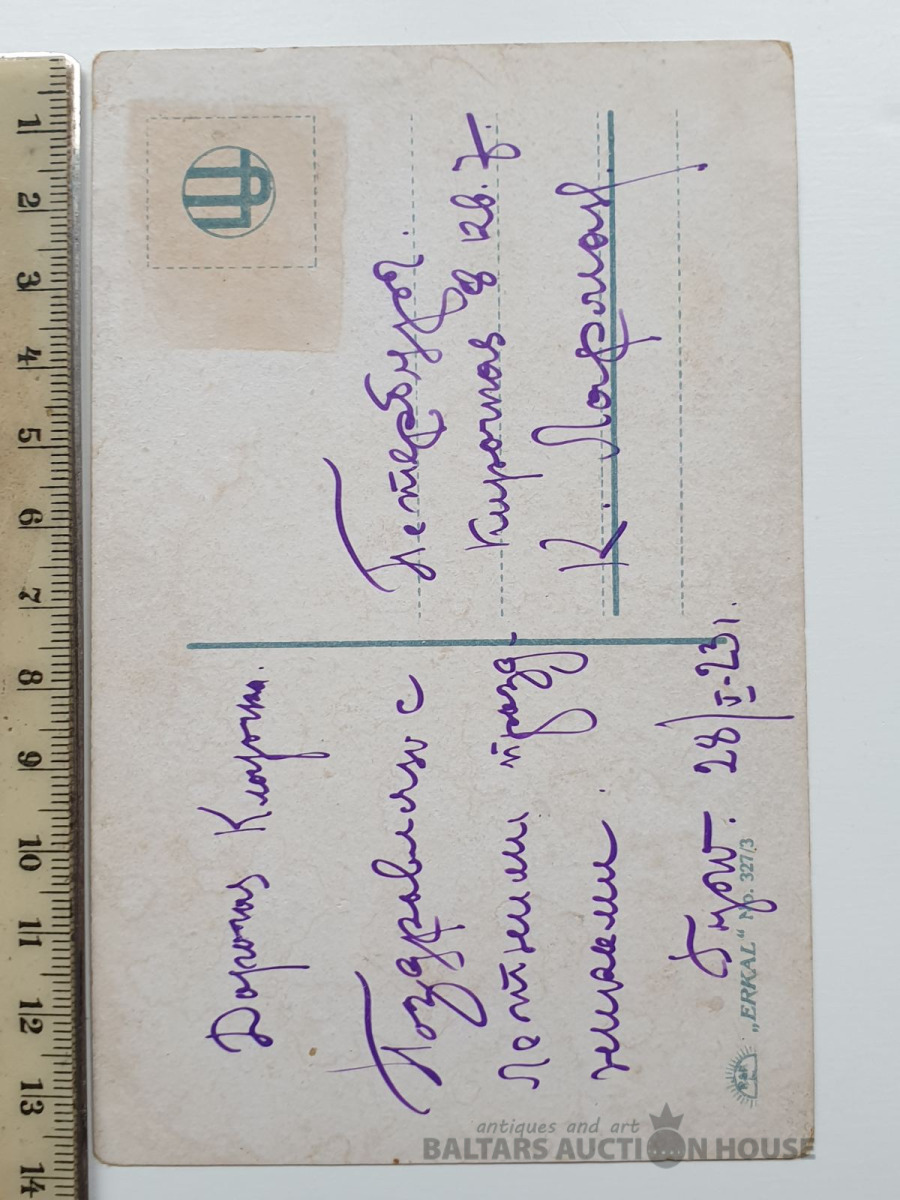 Дорогая Кларочка.
Поздравляю с
Летними празд-
никами.
28/V-23 г.
Петербург.
Кирочная 8 кв. 7.
К.
„ERKAL“ No. 327/3
1 2 3 4 5 6 7 8 9 10 11 12 13 14
antiques and art
BALTARS AUCTION HOUSE